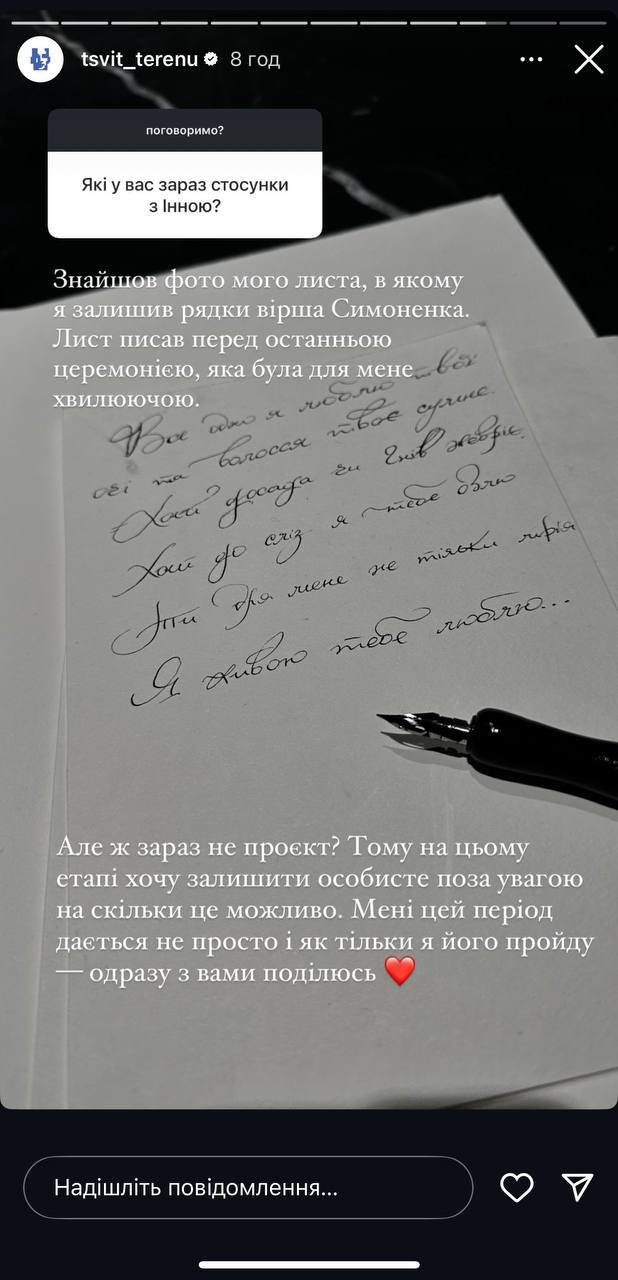 tsvit_terenu 8 год
поговоримо?
Які у вас зараз стосунки
з Інною?
Знайшов фото мого листа, в якому
я залишив рядки вірша Симоненка.
Лист писав перед останньою
церемонією, яка була для мене
хвилюючою.
Все одно я люблю твої
очі та волосся твоє сумне.
Хай досада чи гнів жевріє,
Хай до сліз я тебе
Ти для мене не тільки мрія
Я живою тебе люблю...
Але ж зараз не проєкт? Тому на цьому
етапі хочу залишити особисте поза увагою
на скільки це можливо. Мені цей період
дається не просто і як тільки я його пройду
— одразу з вами поділюсь ❤️
Надішліть повідомлення...